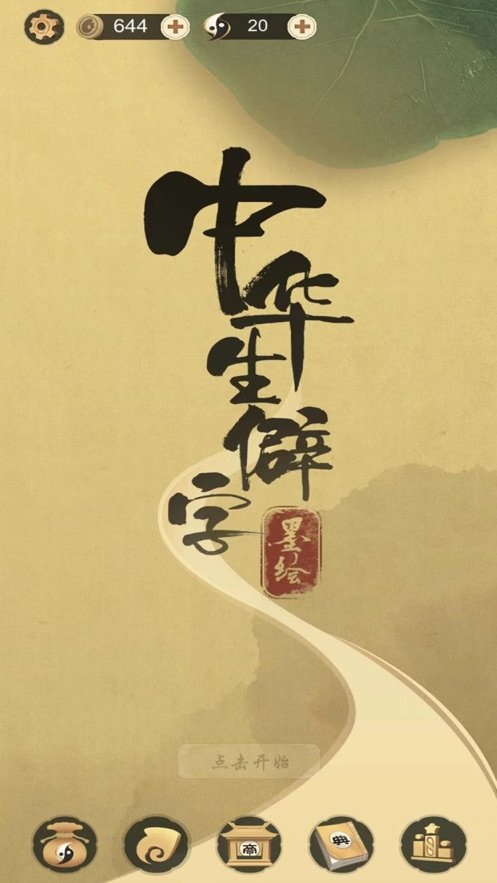 644
20
中华生僻字
墨绘
点击开始
商
典